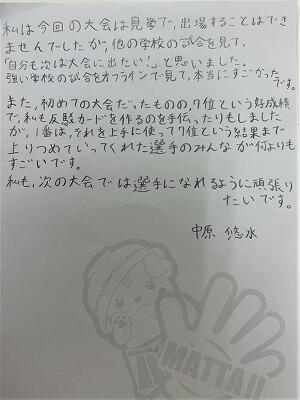 私は今回の大会は見学で、出場することはでき
ませんでしたが、他の学校の試合を見て、
「自分も次は大会に出たい!」と思いました。
強い学校の試合をオフラインで見て、本当にすごかった
です。
また、初めての大会だったものの、7位という好成績
で、私も反駁カードを作るのを手伝ったりもしました
が、1番は、それを上手に使って7位という結果まで
上りつめていってくれた選手のみんなが何よりも
すごいです。
私も、次の大会では選手になれるように頑張り
たいです。
中原 悠水
MATTA!!